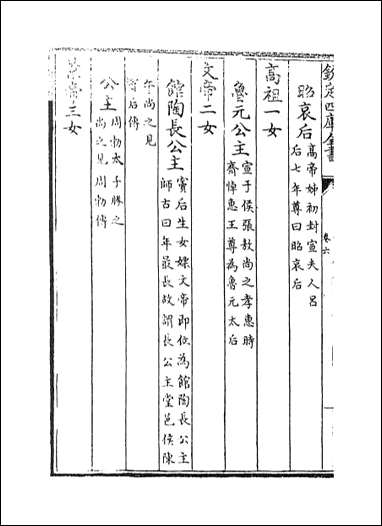 欽定四庫全書
卷六
昭哀后 高帝姊初封宣夫人呂
后七年尊曰昭哀后
高祖一女
魯元公主 宣于侯張敖尚之孝惠時
齊悼惠王尊為魯元太后
文帝二女
館陶長公主 竇后生女嫖文帝即位為館陶長公主
師古曰年最長故謂長公主堂邑侯陳
午尚之見
竇后傳
公主 周勃太子勝之
尚之見周勃傳
景帝三女